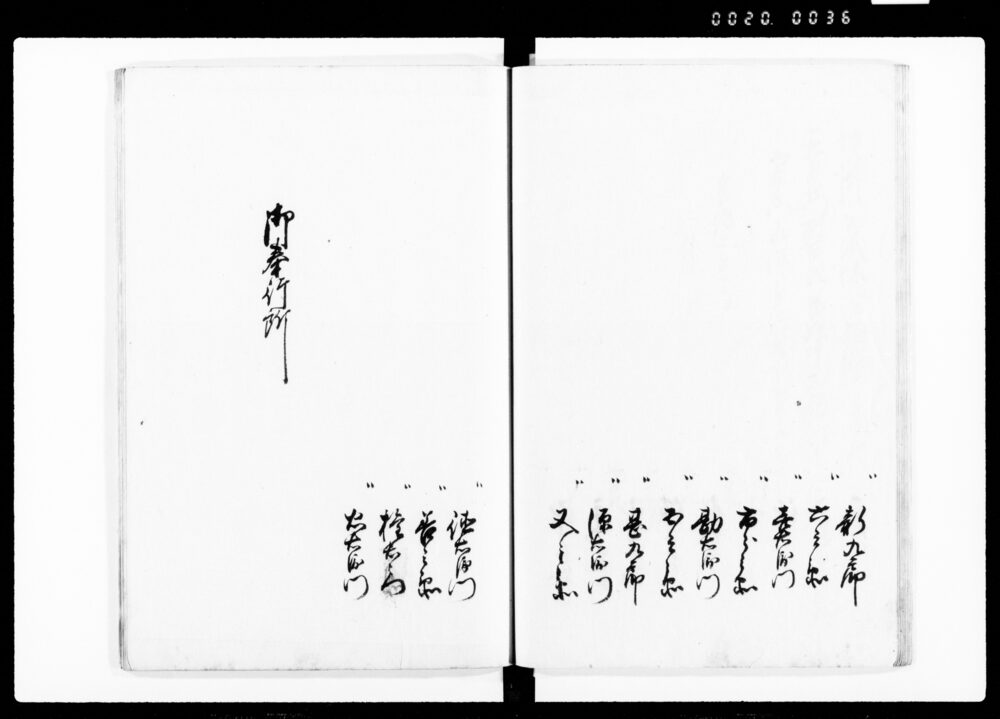 0020. 0036
〃 新九郎
〃 六之丞
〃 喜右衛門
〃 市之丞
〃 勘右衛門
〃 甚九郎
〃 源右衛門
〃 又之丞
〃 徳右衛門
〃 善之丞
〃 権右衛門
御奉行所